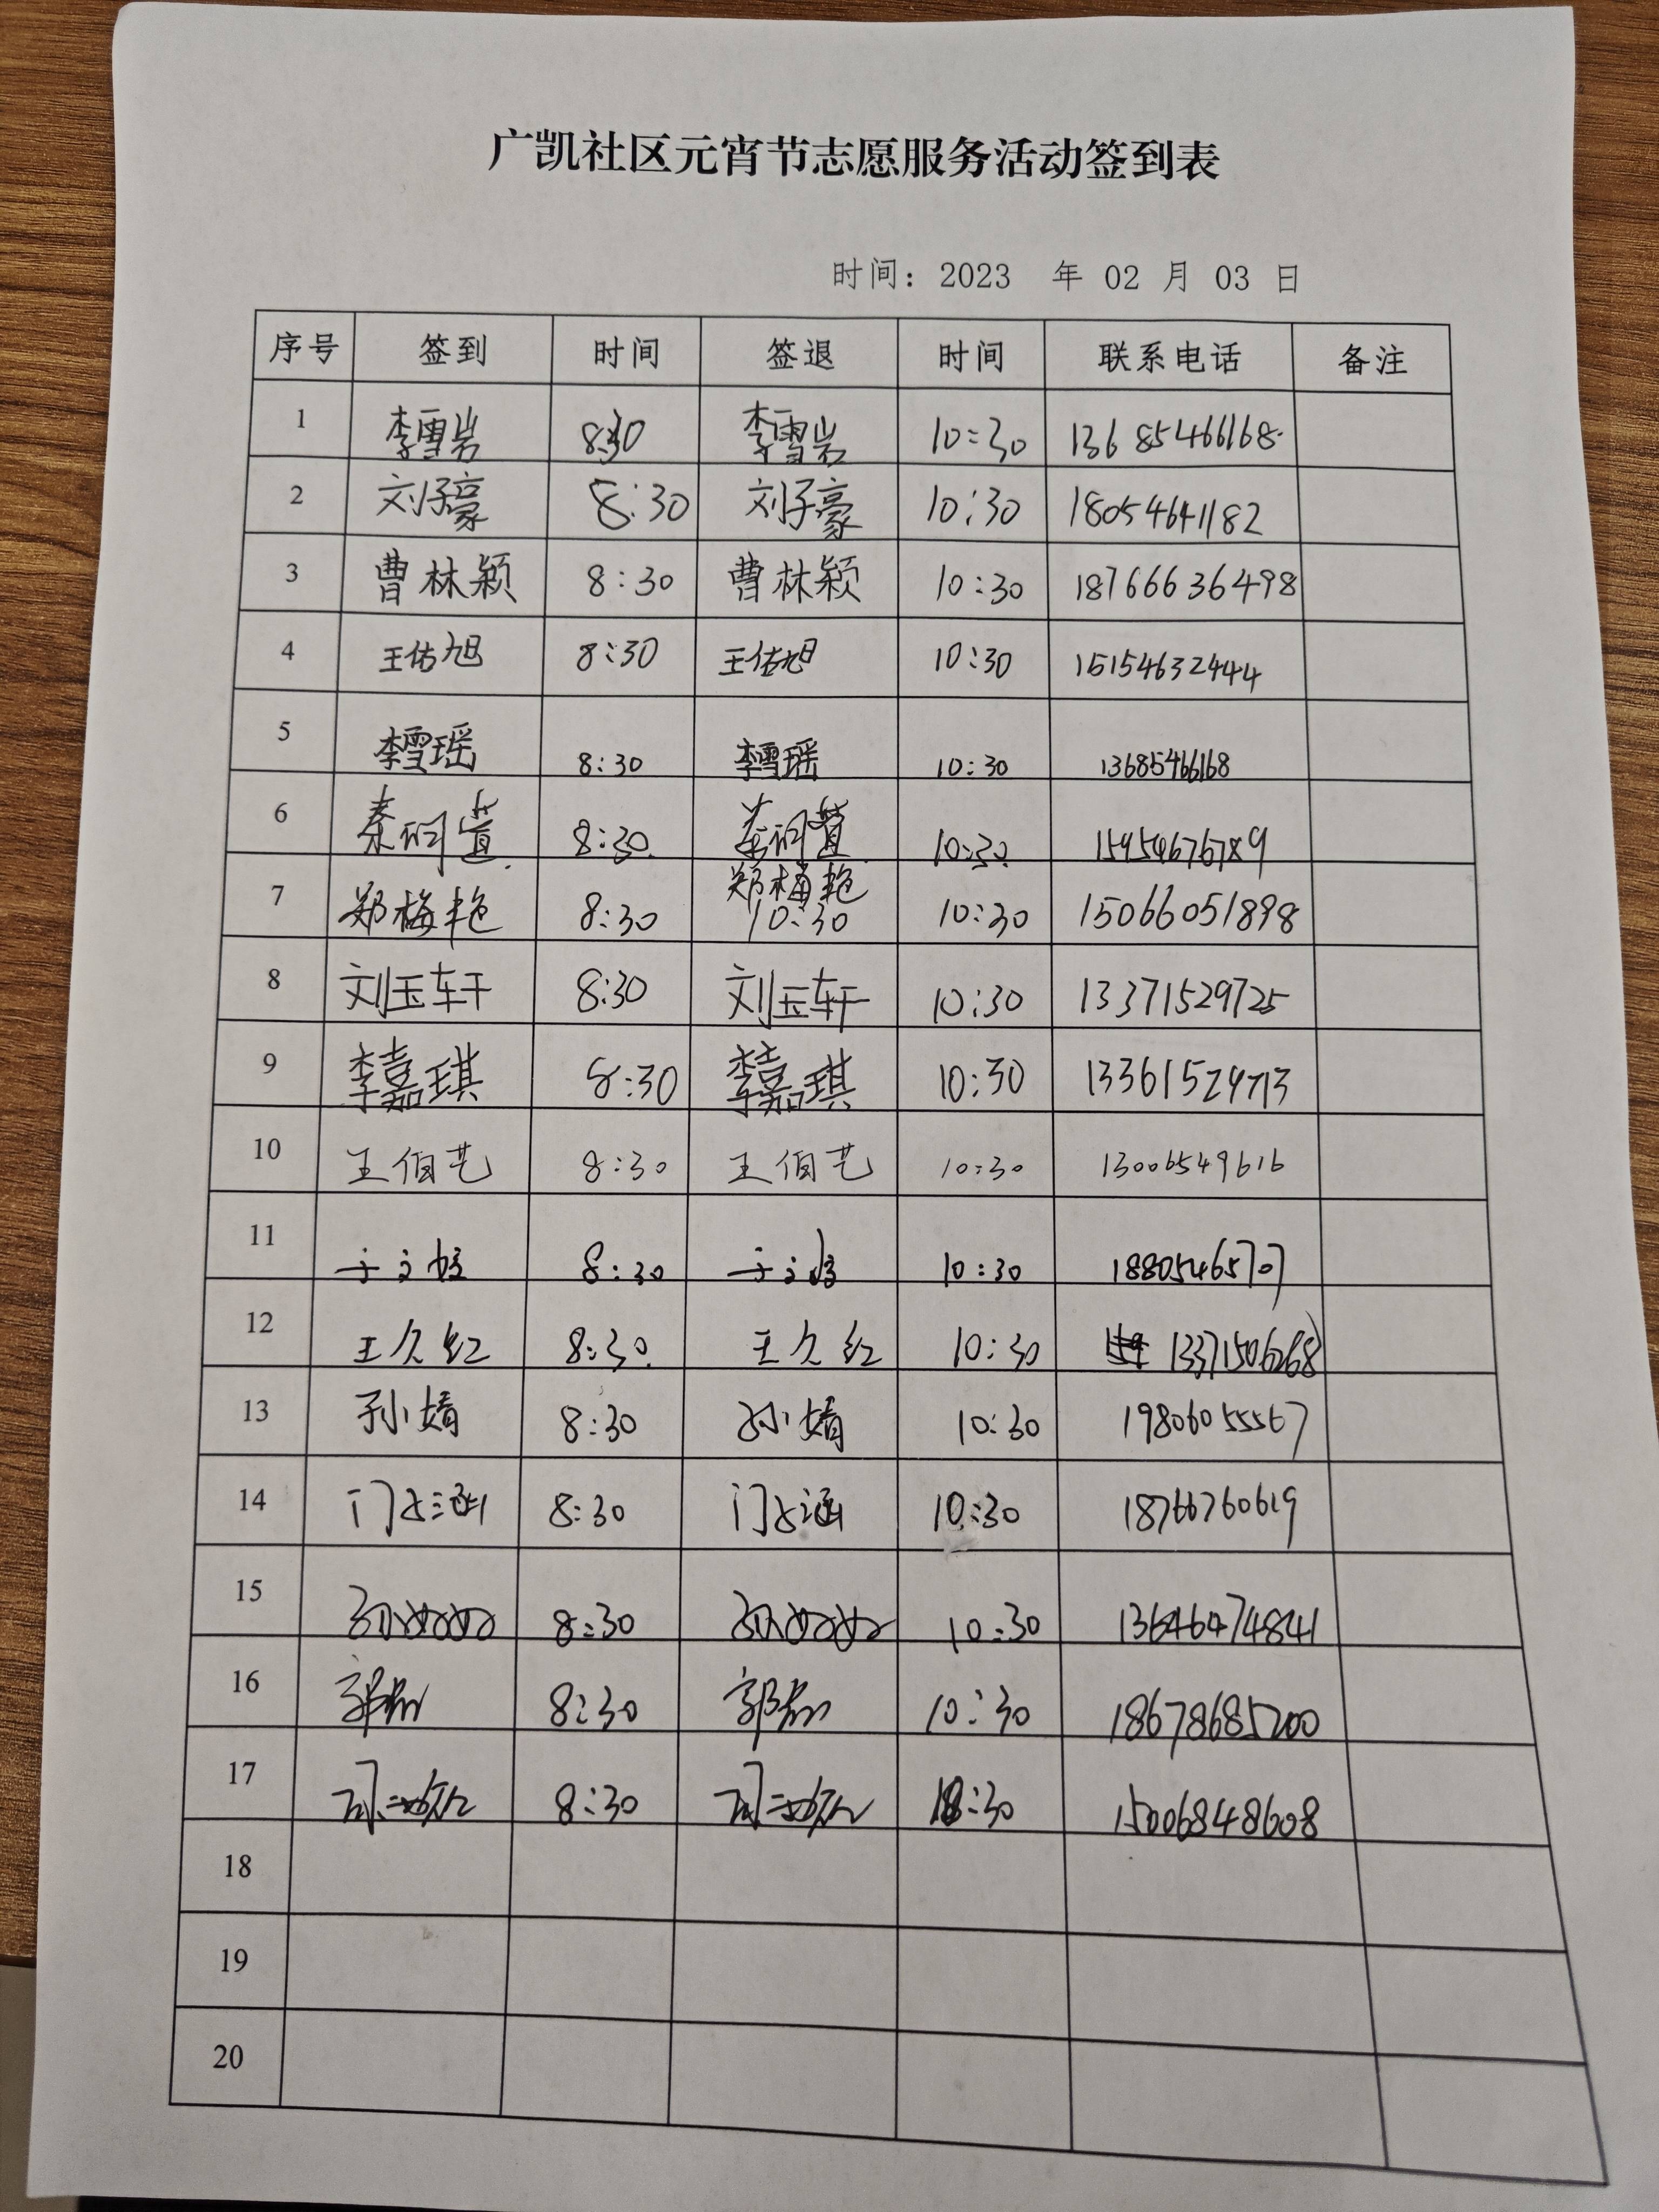 广凯社区元宵节志愿服务活动签到表
时间：2023 年 02 月 03 日
序号 签到 时间 签退 时间 联系电话 备注
1 李雪岩 8:30 李雪岩 10:30 13685466168
2 刘子豪 8:30 刘子豪 10:30 18054641182
3 曹林颖 8:30 曹林颖 10:30 18766636498
4 王佑旭 8:30 王佑旭 10:30 15154632444
5 李雪瑶 8:30 李雪瑶 10:30 13685466168
6 8:30 10:30 15954676789
7 郑梅艳 8:30 郑梅艳 10:30 10:30 15066051898
8 刘玉轩 8:30 刘玉轩 10:30 13371529725
9 李嘉琪 8:30 李嘉琪 10:30 13361524713
10 王伯艺 8:30 王伯艺 10:30 13006549616
11 8:30 10:30 18805465707
12 王久红 8:30 王久红 10:30 13371506268
13 孙婧 8:30 孙婧 10:30 19806055567
14 8:30 10:30 18766760619
15 8:30 10:30 13646474841
16 8:30 10:30 18678685200
17 8:30 :30 15006848608
18
19
20